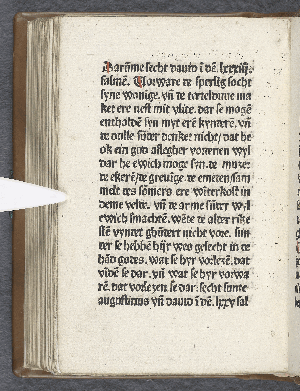 Darūme secht dauid ī dē. lxxxiij.
salmē. Vorware de sperlig socht
syne wonige. vñ de torteldune ma
ket ere nest mit vlite. dar se mogē
entholdē syn myt erē kynerē. vñ
de dulle sūder denket nicht/ dat he
ok ein god aflegher vorenen wyl
dar he ewich moge syn. de muze:
de ekerē/de greuige. de emeten sam
melt des sōmers ere wīterkost in
deme velde. vñ de arme sūder wyl
ewich smachtē. Wēte de alder rike
stē vyndt ghūdert nicht vore. sun
der se hebbē hijr weo gelecht in de
hād godes. wat se hyr vorlezē. dat
vīdē se dar. vñ wat se hyr vorwa
rē. dat vorlezen se dar. secht sante
augustinus vñ dauid ī dē. lxxv sal